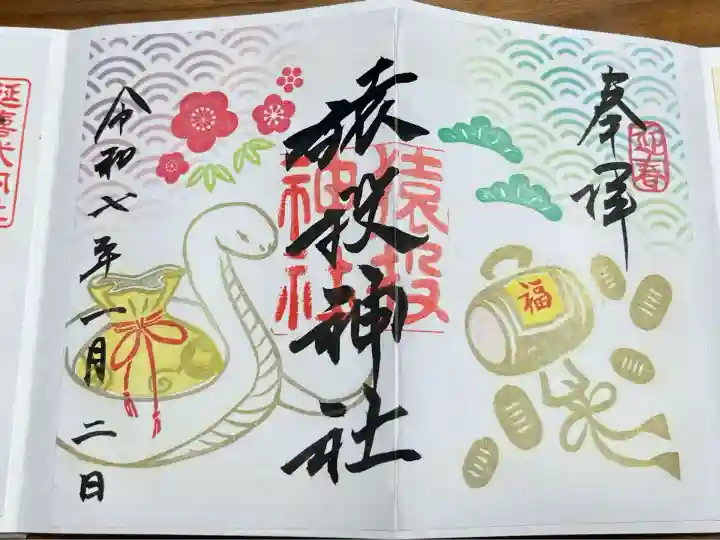 奉拝
迎春
福
猿投神社
猿投
神社
令和七年一月二日